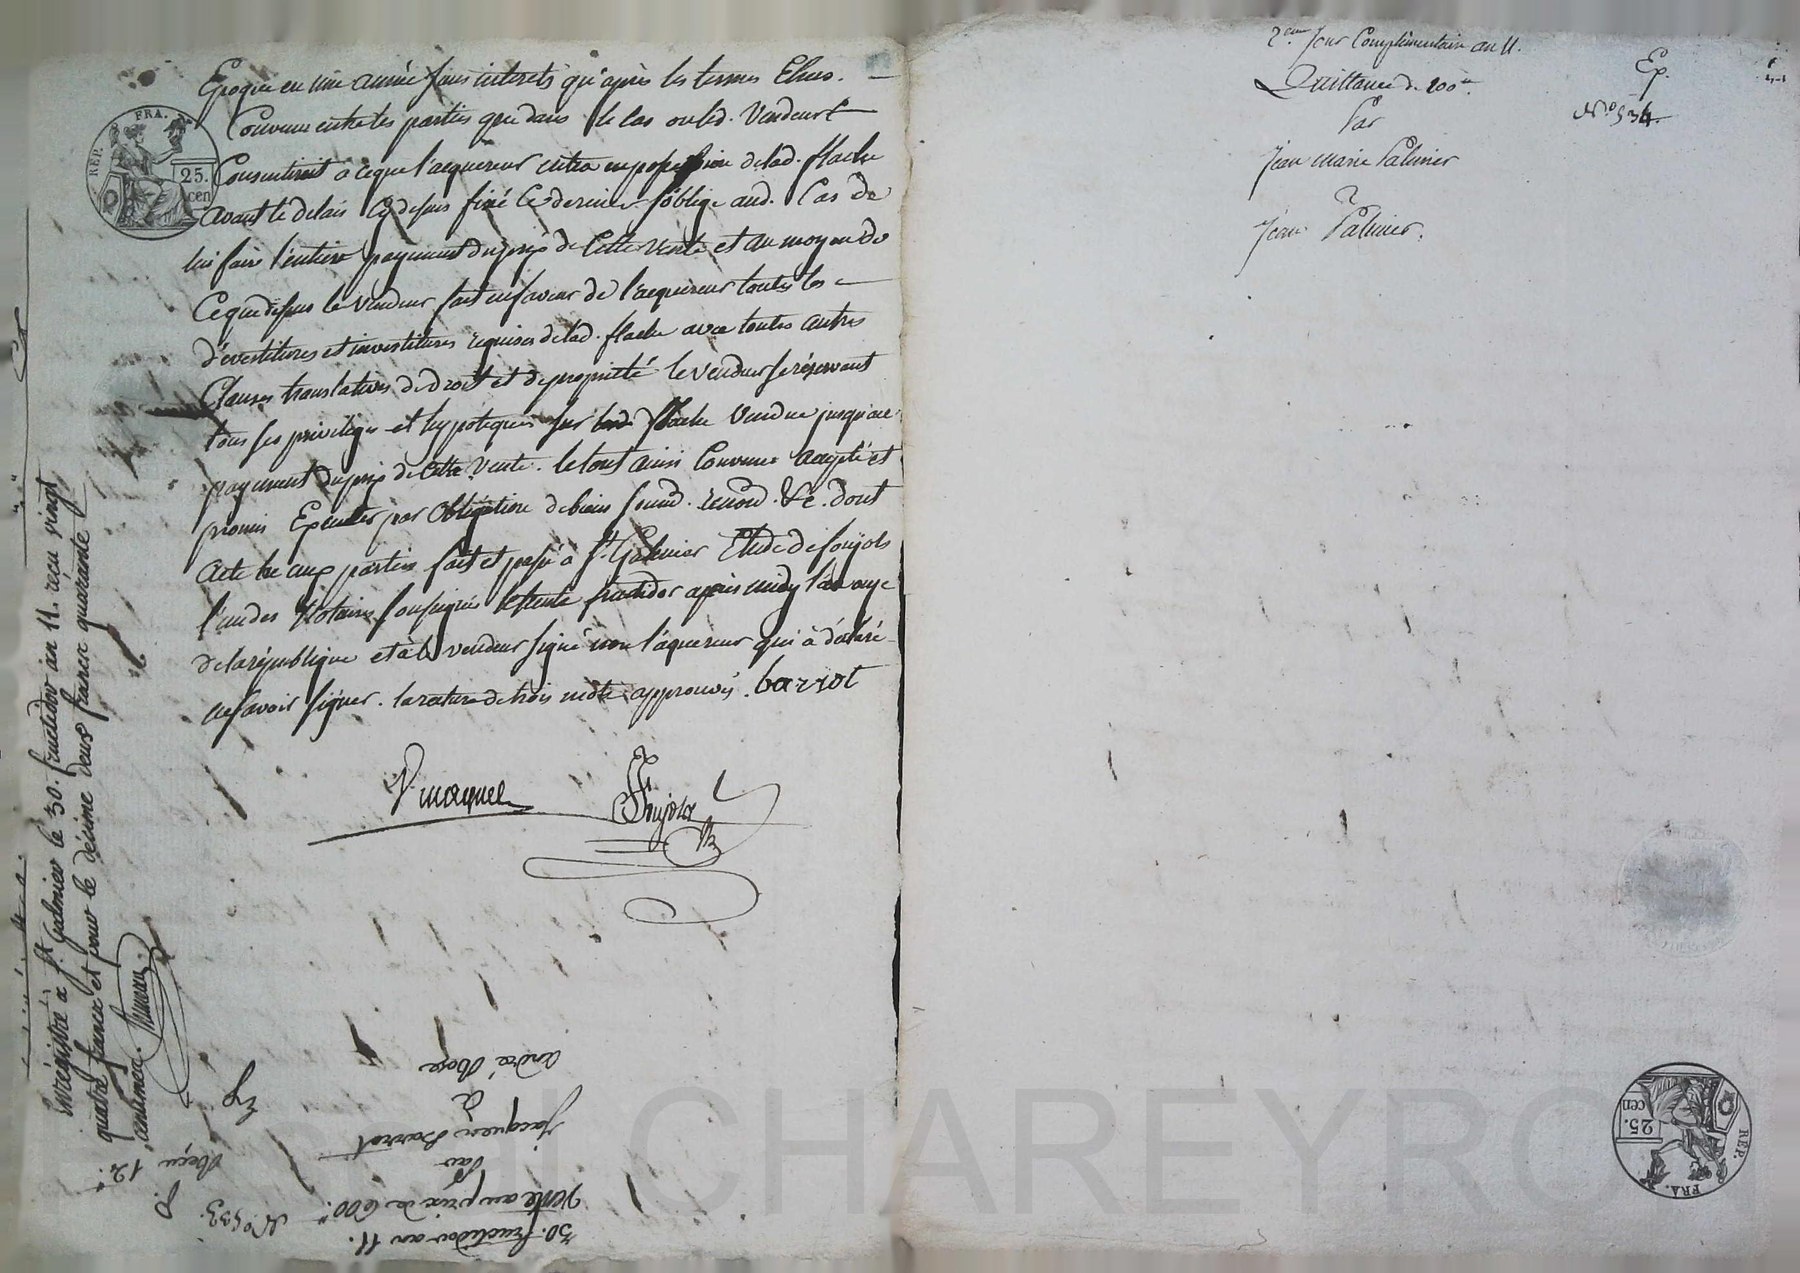 Epoque en une année sans interets qu'après les termes Echus.
Convenu entre les parties que dans le cas ou led. Vendeur
Consentiroit a ceque l'acquereur entra en possession delad. flache
avant le delais Cydessus fixé Ce dernier s'oblige aud. Cas de
lui faire l'entier payement du prix de Cette vente et au moyen de
Ceque dessus le vendeur fait en faveur de l'acquereur toutes les
d'évestitures et investitures requises delad. flache avec toutes autres
Clauses translatives de droit et de propriété le vendeur se réservant
tous ses privilèges et hypoteques sur lad. flache vendue jusqu'au
payement du prix de Cette Vente. le tout ainsi Convenu accepté et
promis Executer par Obligation de biens soumd. renond. &c. dont
acte lu aux parties fait et passé à St. Galmier Etude de soujols
l'un des Notaires soussignés le trente fructidor après midy l'an onze
de la république et à le vendeur signé non l'aquereur qui à déclaré
ne savoir signer. la rature de trois mots approuvés. barrot
25.
cen
REP. FRA.
Enrégistré à st. Galmier le 30. fructidor an 11. reçu vingt
quatre francs et pour le décime deux francs quarante
centimes.
30. fructidor an 11.
Vente au prix de 600.
Par
Jacques Barrot
à
andré
N.° 533.
Reçu 12.
Ex.
2.eme Jour Complémentaire an 11.
Quittance de 200.
Par
Jean marie Palmier
à
Jean Palmier.
Ex.
N.° 534.
25.
cen
REP. FRA.
CHAREYRON